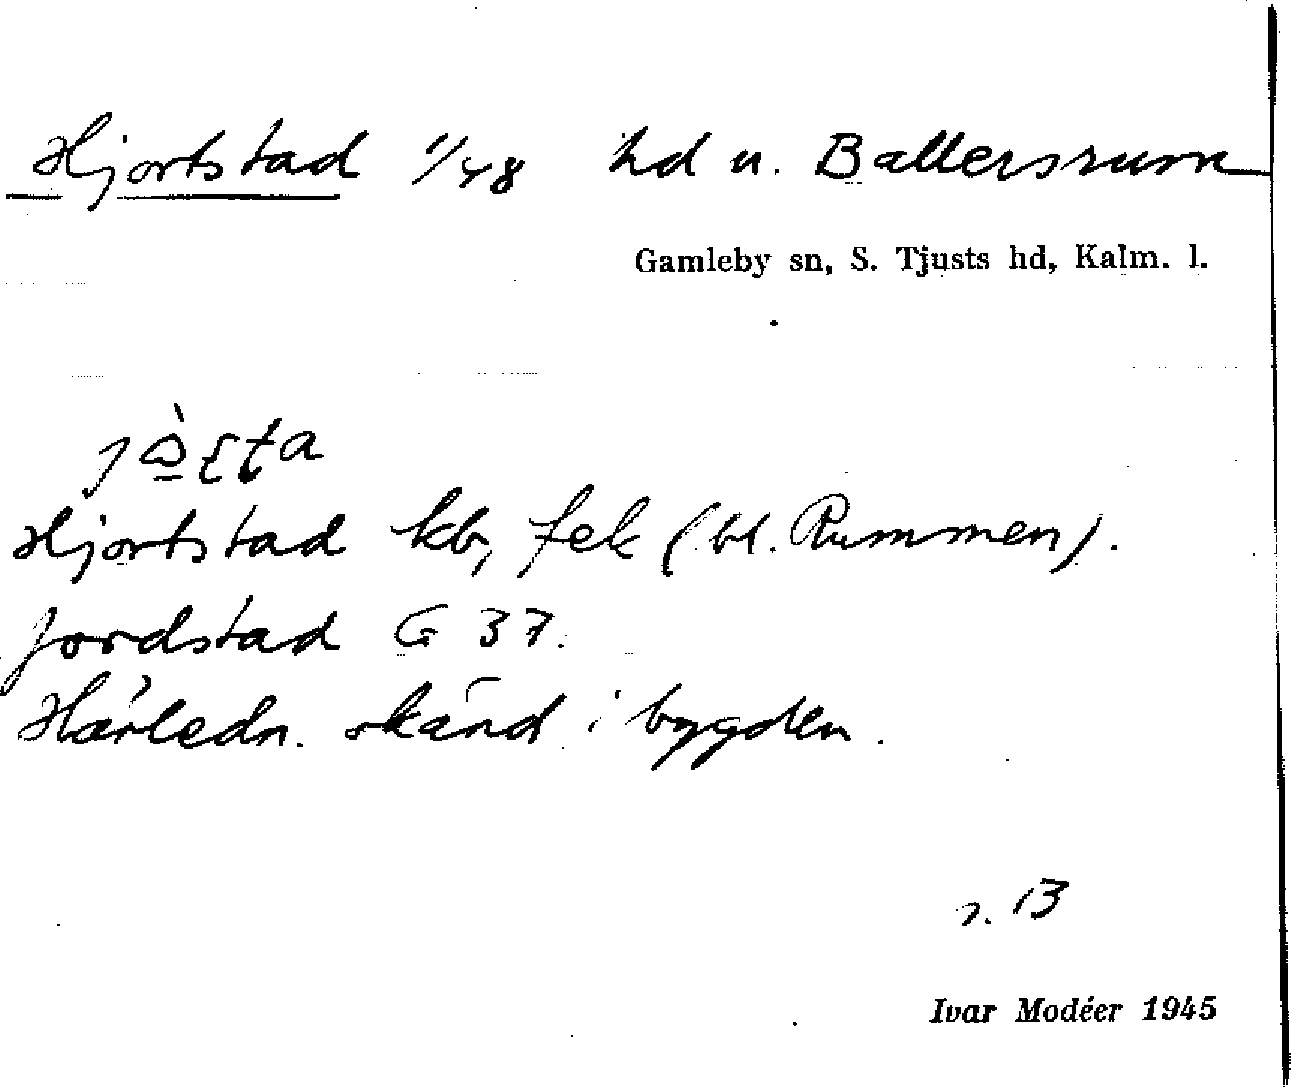 Hjortstad 1/48 hd u. Ballersrum
Gamleby sn, S. Tjusts hd, Kalm. l.
Hjortstad kb, fek (bl. Rummen).
Jordstad G 37.
Härledn. okänd i bygden.
s. 13
Ivar Modéer 1945